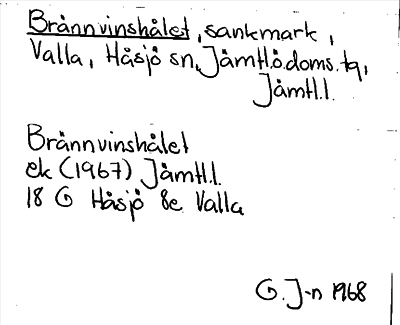 Brännvinshålet, sankmark,
Valla, Håsjö sn, Jämtl.ö.doms.tq,
Jämtl.l.
Brännvinshålet
ek (1967) Jämtl.l.
18 G Håsjö 8e Valla
G. J-n 1968